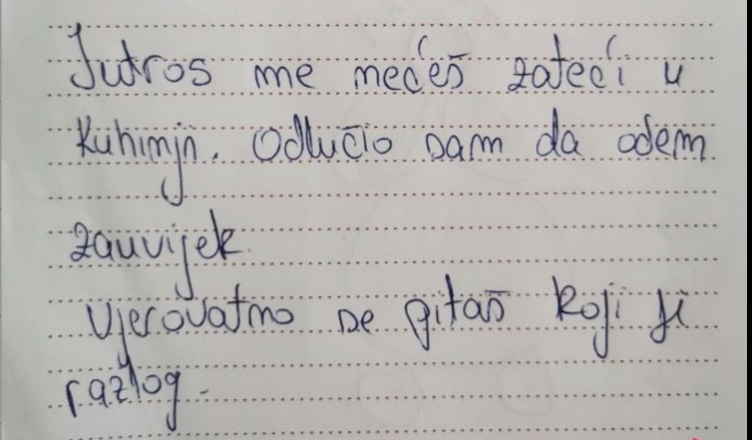 Jutros me nećeš zateći u
Kuhinji. Odlučio sam da odem
zauvijek
Vjerovatno se pitaš koji je
razlog.